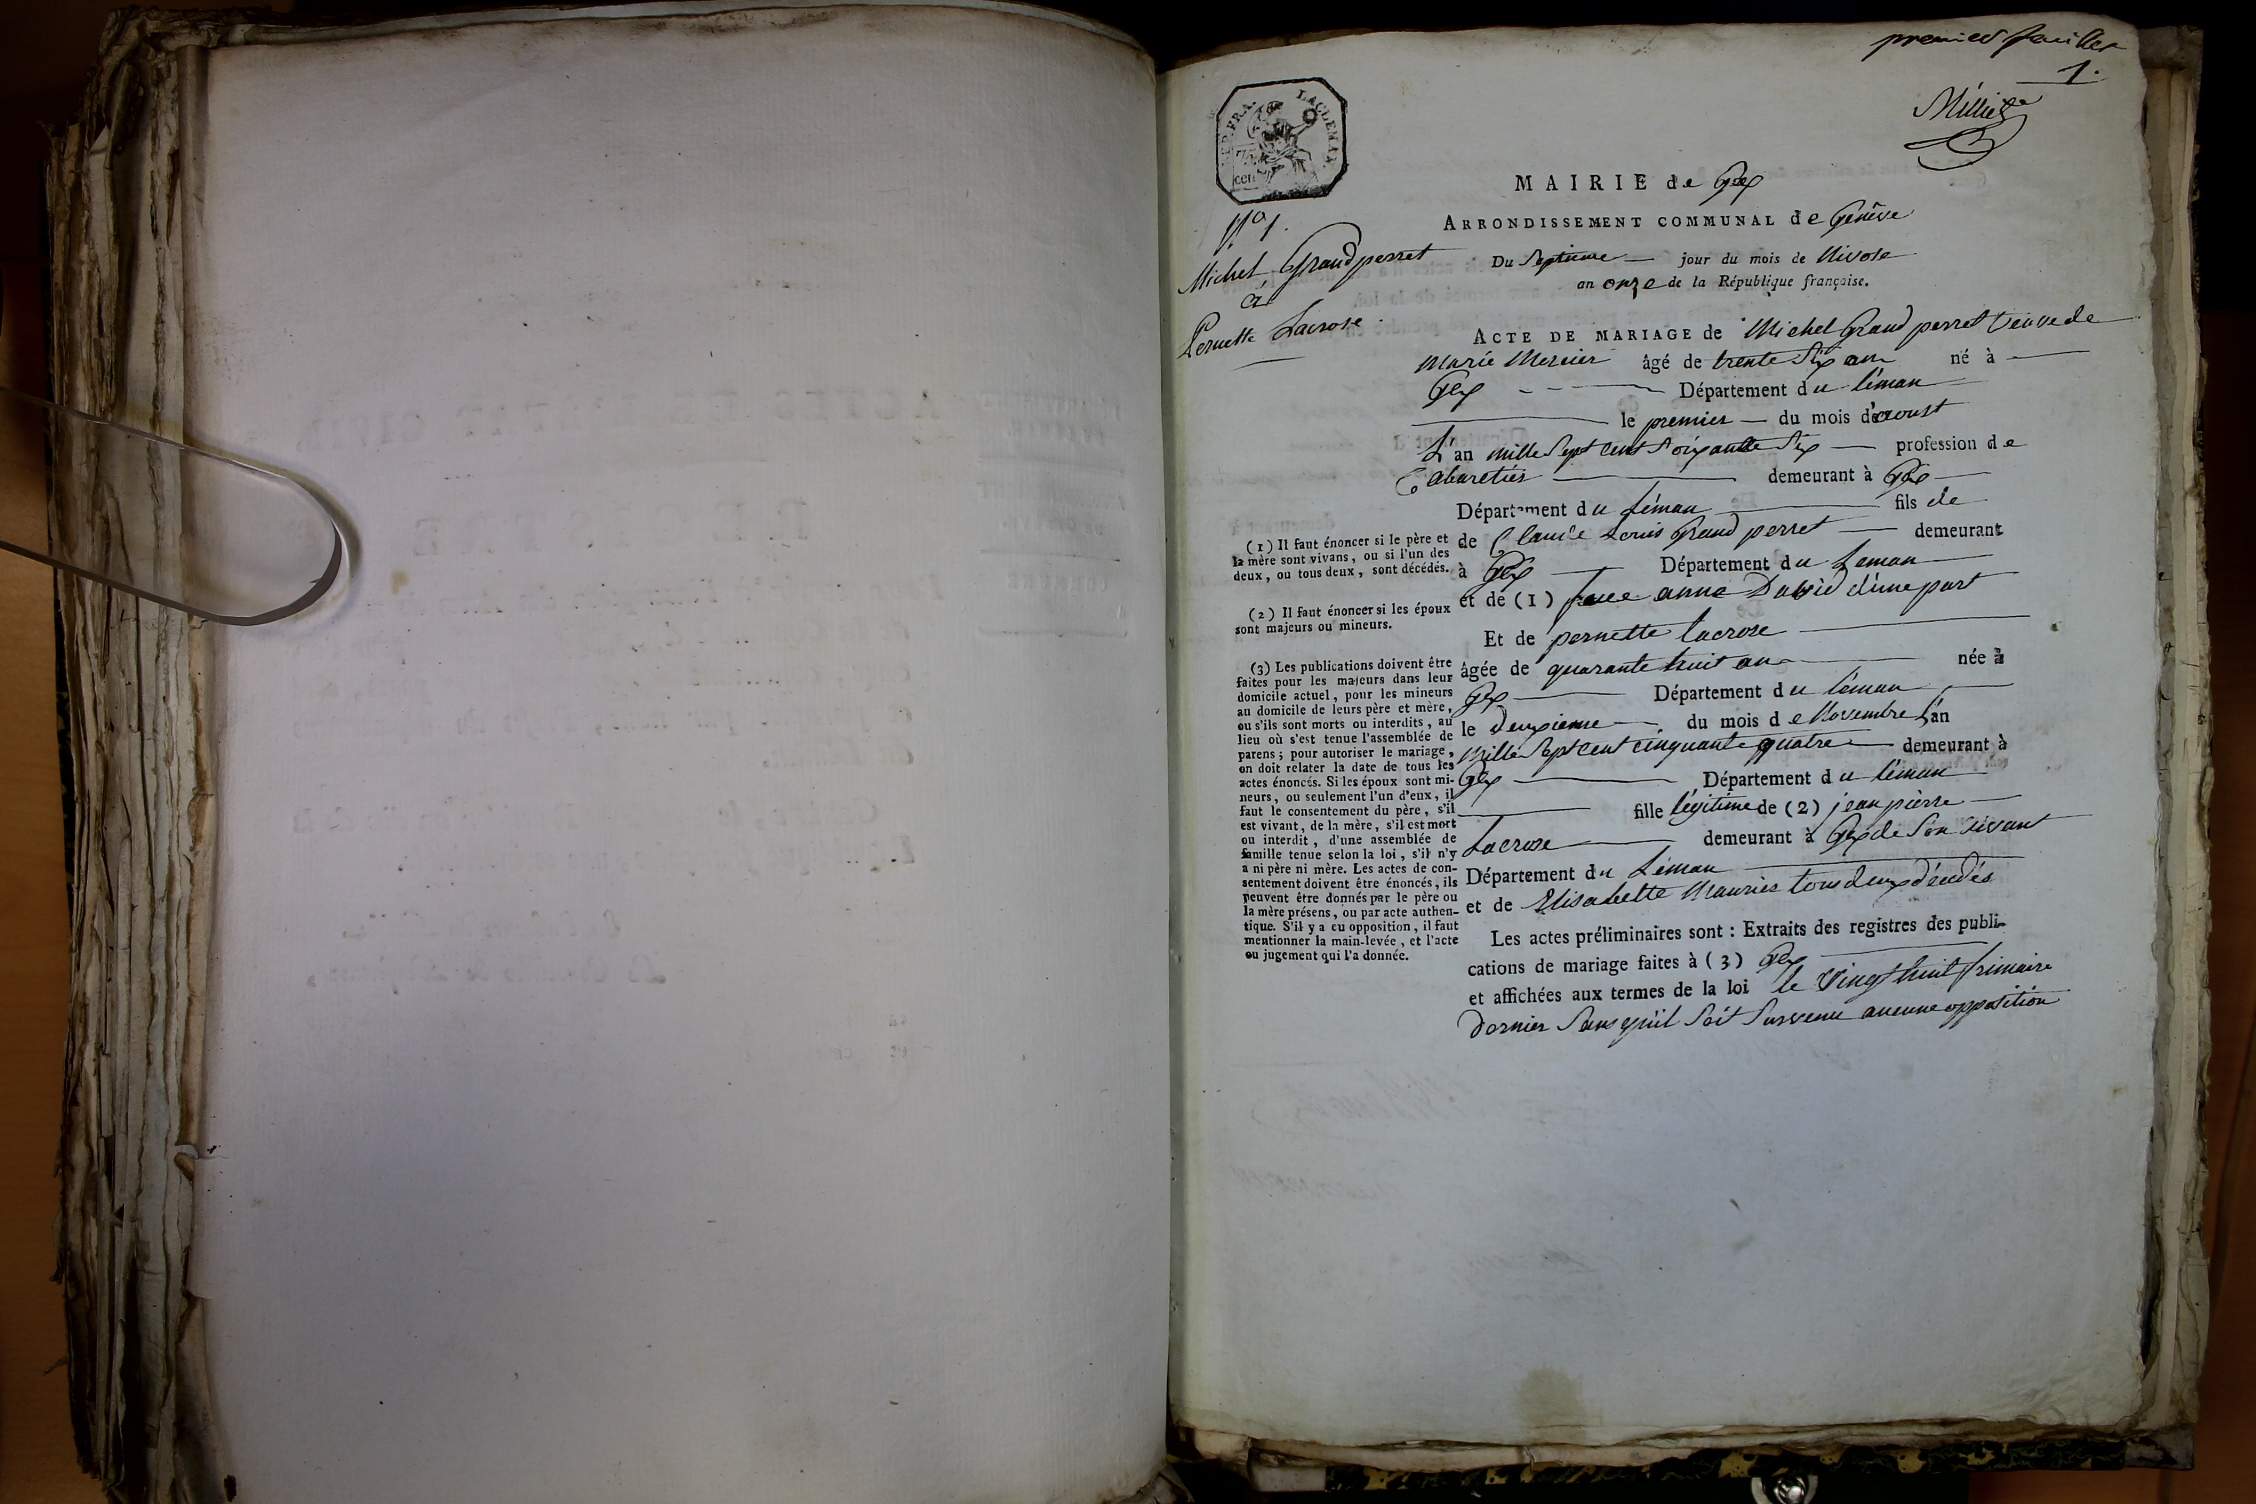 premier feuillet
1.
Milliet
REP. FRA.
75
cen
N.º 1.
Michel Grandperret
à
Pernette Lacrose
MAIRIE de Gex
ARRONDISSEMENT COMMUNAL de Genève
Du Septieme jour du mois de Nivose
an onze de la République française.
ACTE DE MARIAGE de Michel Grand perret veuve de
Marie Mercier âgé de trente Six ans né à
Gex Département du léman
le premier du mois d'aoust
L'an mille Sept cent Soixante Six profession de
Cabaretier demeurant à Gex
Département du Léman fils de
de Claude Louis Grand perret demeurant
à Gex Département du Leman
et de (1) feue anne David d'une part
Et de pernette lacrose
âgée de quarante huit ans née à
Gex Département du léman
le deuxieme du mois de Novembre l'an
Mille Sept cent cinquante quatre demeurant à
Gex Département du léman
fille légitime de (2) jean pierre
Lacrose demeurant à Gex de Son vivant
Département du Léman
et de Elisabette Maurier tous deux décédés
Les actes préliminaires sont : Extraits des registres des publi-
cations de mariage faites à (3) Gex
et affichées aux termes de la loi le vingt huit frimaire
dernier Sans qu'il Soit Survenu aucune opposition
(1) Il faut énoncer si le père et
la mère sont vivans, ou si l'un des
deux, ou tous deux, sont décédés.
(2) Il faut énoncer si les époux
sont majeurs ou mineurs.
(3) Les publications doivent être
faites pour les majeurs dans leur
domicile actuel, pour les mineurs
au domicile de leurs père et mère,
ou s'ils sont morts ou interdits, au
lieu où s'est tenue l'assemblée de
parens ; pour autoriser le mariage,
on doit relater la date de tous les
actes énoncés. Si les époux sont mi-
neurs, ou seulement l'un d'eux, il
faut le consentement du père, s'il
est vivant, de la mère, s'il est mort
ou interdit, d'une assemblée de
famille tenue selon la loi, s'il n'y
a ni père ni mère. Les actes de con-
sentement doivent être énoncés, ils
peuvent être donnés par le père ou
la mère présens, ou par acte authen-
tique. S'il y a eu opposition, il faut
mentionner la main-levée, et l'acte
ou jugement qui l'a donnée.